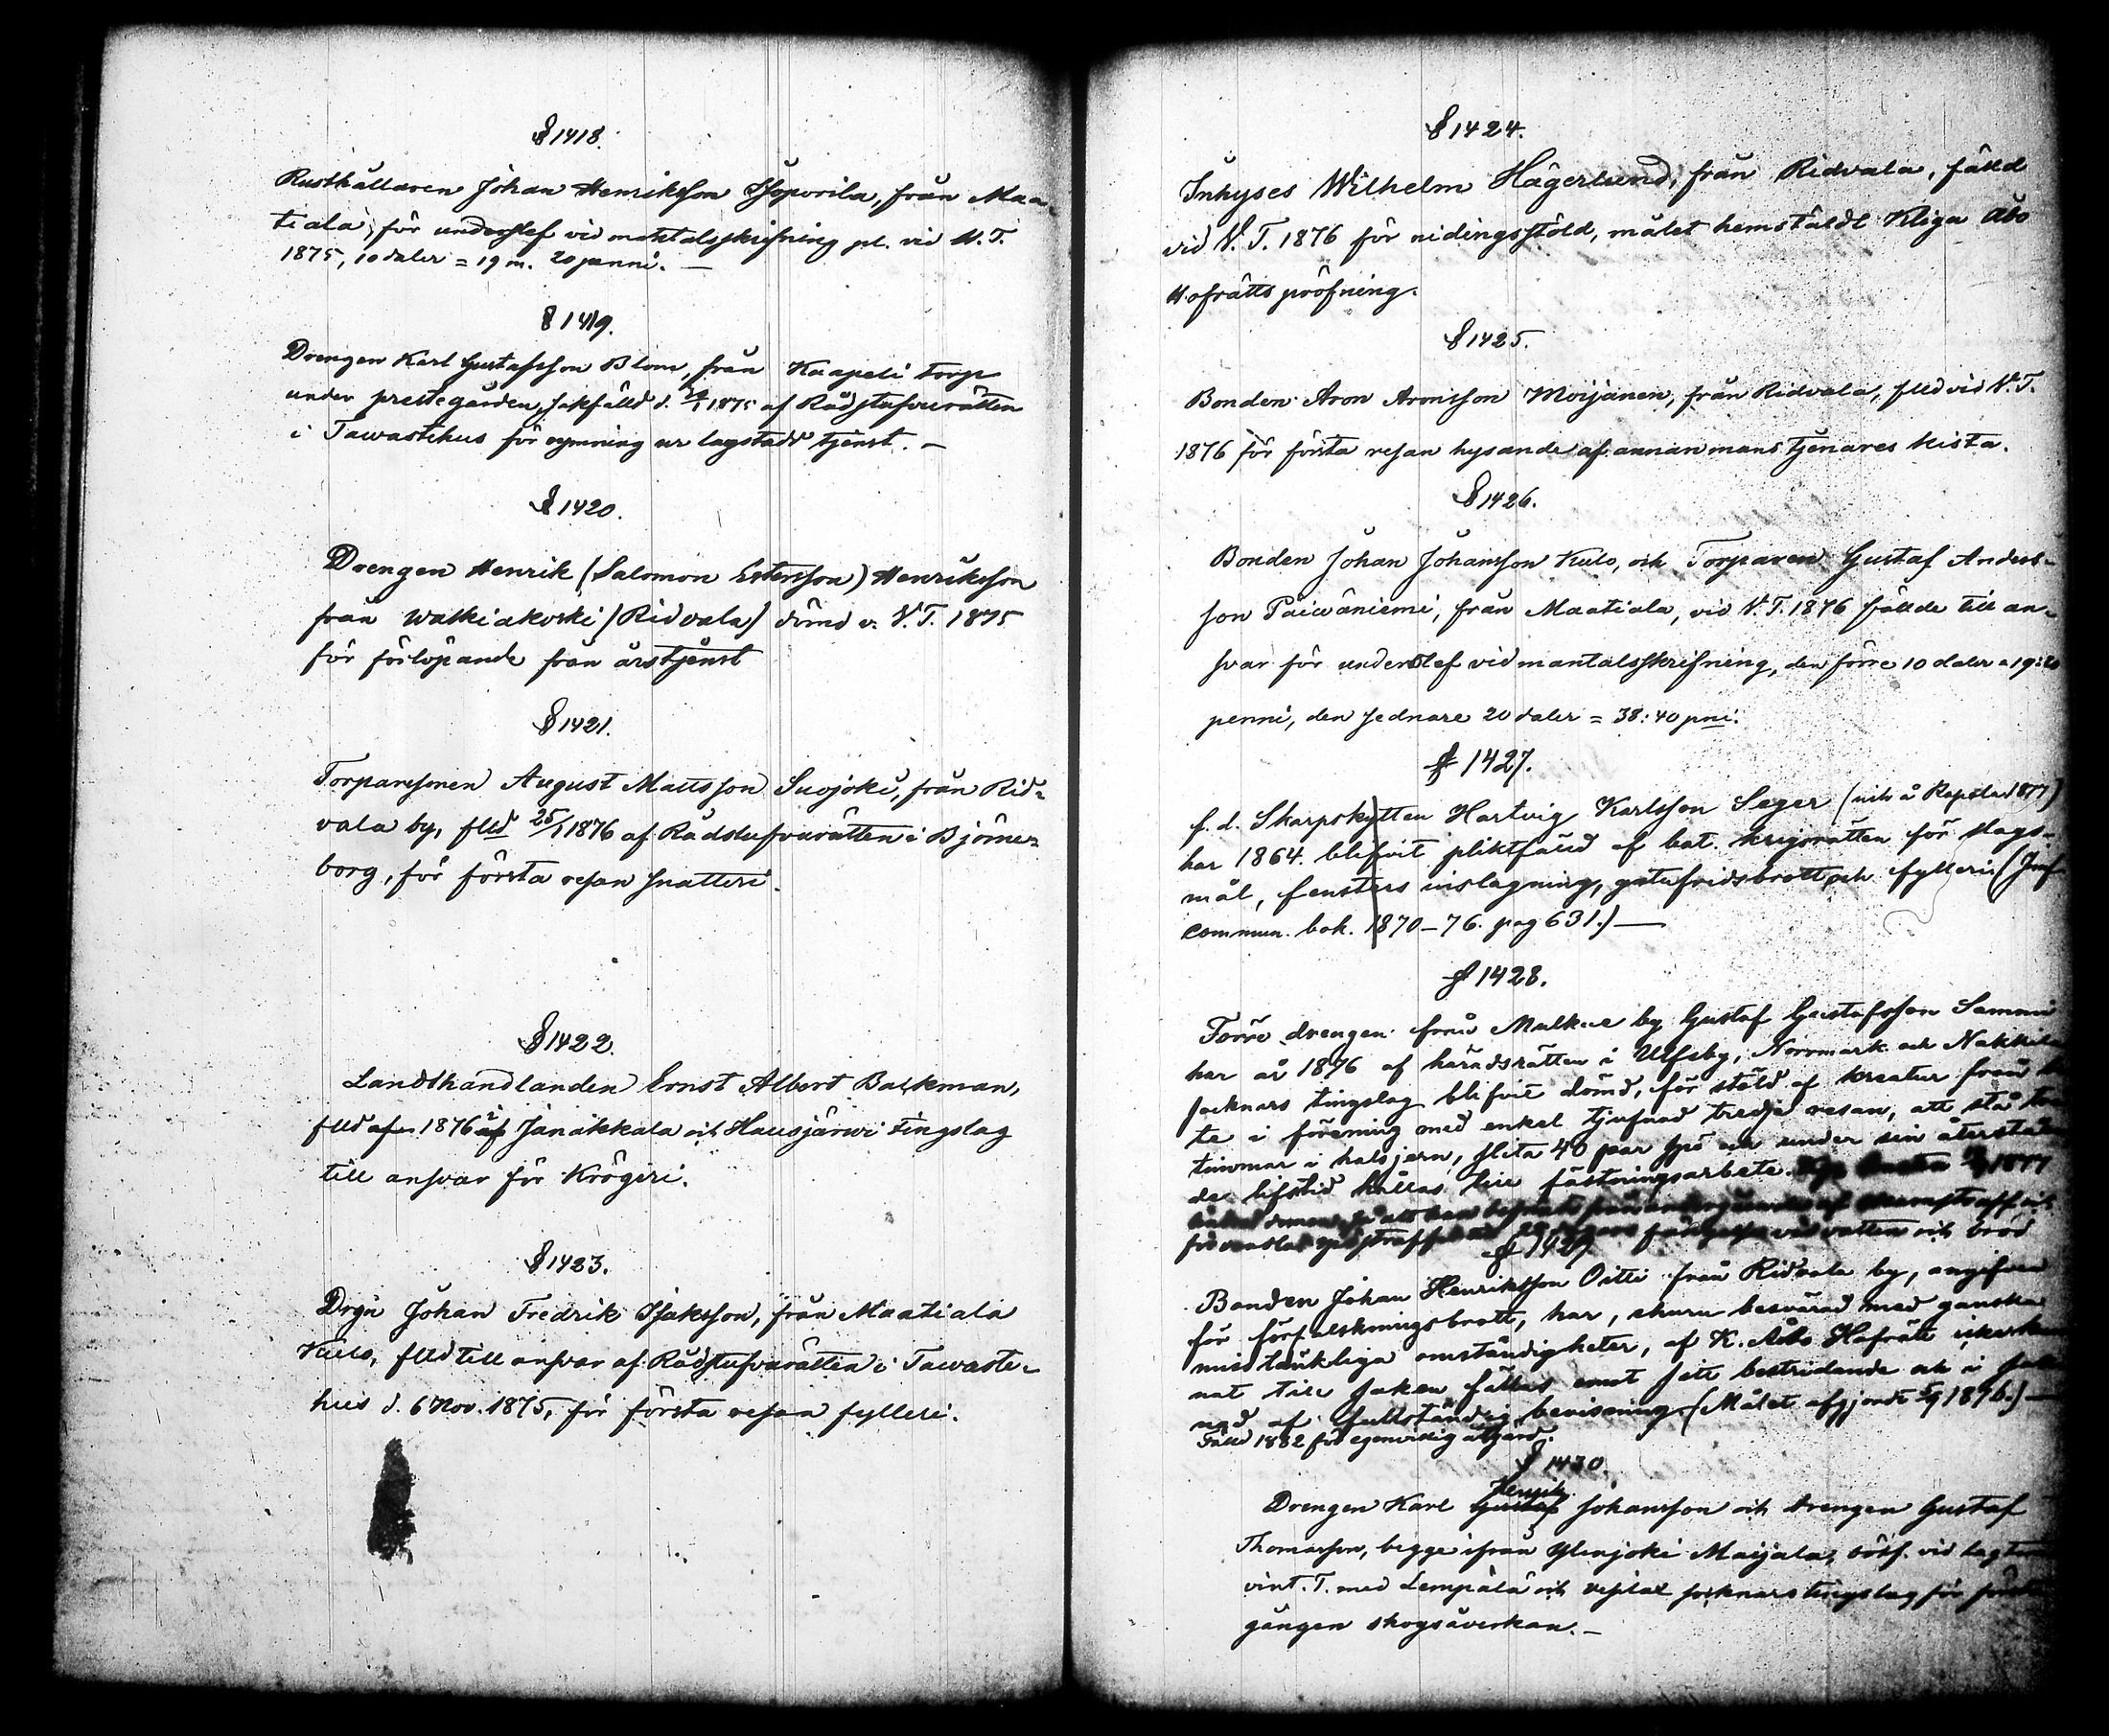 § 1418.
Rusthållaren Johan Henriksson Isoporila, från Maa-
tiala, för underslef vid mantalsskrifning pl. vid H. T.
1875, 10 daler = 19 m. 20 penni. —
§ 1419.
Drengen Karl Gustafsson Blom, från Kaapeli torp
under prestegården, sakfälld d. 1875 af Rådstufvurätten
i Tawastehus för rymning ur lagstadd tjenst. —
§ 1420.
Drengen Henrik (Salomon Estersson) Henriksson
från Walkiakoski (Ridvala) dömd v. V. T. 1875
för förlöpande från årstjenst
§ 1421.
Torparesonen August Mattsson Suojoki, från Rid-
vala by, flld 25/1 1876 af Rådstufvurätten i Björne-
borg, för första resan snatteri.
§ 1422.
Landthandlanden Ernst Albert Backman,
flld 1876 i Janakkala och Hausjärwi tingslag
till ansvar för Krögeri.
§ 1423.
Drgn Johan Fredrik Isaksson, från Maatiala
Kulo, flld till ansvar af Rådstufvurätten i Tawaste-
hus d. 6 Nov. 1875, för första resan fylleri.
§ 1424.
Inhyses Wilhelm Hägerlund, från Ridvala, fälld
vid V. T. 1876 för nidingsstöld, målet hemstäldt Kliga Åbo
Hofrätts pröfning.
§ 1425.
Bonden Aron Aronsson Moijanen, från Ridvala, flld vid V. T.
1876 för första resan hysande af annan mans tjenares kista.
§ 1426.
Bonden Johan Johansson Kulo, och Torparen Gustaf Anders-
son Päiwäniemi, från Maatiala, vid V. T. 1876 fällde till an-
svar för underslef vid mantalsskrifning, den förre 10 daler = 19: 20
penni, den sednare 20 daler = 38: 40 pni.
§ 1427.
f. d. Skarpskytten Hartvig Karlsson Seger
har 1864 blifvit pliktfälld af bat. krigsrätten för slags-
mål, fensters inslagning, gatufridsbrott och fylleri (Jmf.
commun. bok. 1870–76. pag 631.) —
§ 1428.
Förre drengen från Mulkue by Gustaf Gustafsson Sammi
har år 1876 af häradsrätten i Ulfsby, Norrmark och Nakkila
socknars tingslag blifvit dömd, för stöld af kreatur från
te i förening med enkel tjufnad tredje resan, att stå
timmar i halsjern, slita 40 par spö och under sin återstå
de lifstid hållas till fästningsarbete. 1877
fängelse vid vatten och bröd
§ 1429
Bonden Johan Henriksson Oitti från Ridvala by, angifven
för förfalskningsbrott, har, ehuru besvärad med ganska
misstänkliga omständigheter, af K. Åbo Hofrätt icke kun
nat till saken fällas emot sitt bestridande och i sak
nad af fullständig bevisning. (Målet afgjordt 1876.) —
Fälld 1882 för egenvillig åtgärd.
§ 1430.
Drengen Karl Henrik Johansson och drengen Gustaf
Thomasson, begge ifrån Ylenjoki Maijala, bötf. vid lagtima
vint. T. med Lempälä och Wesilax socknars tingslag för första
gången skogsåverkan. —